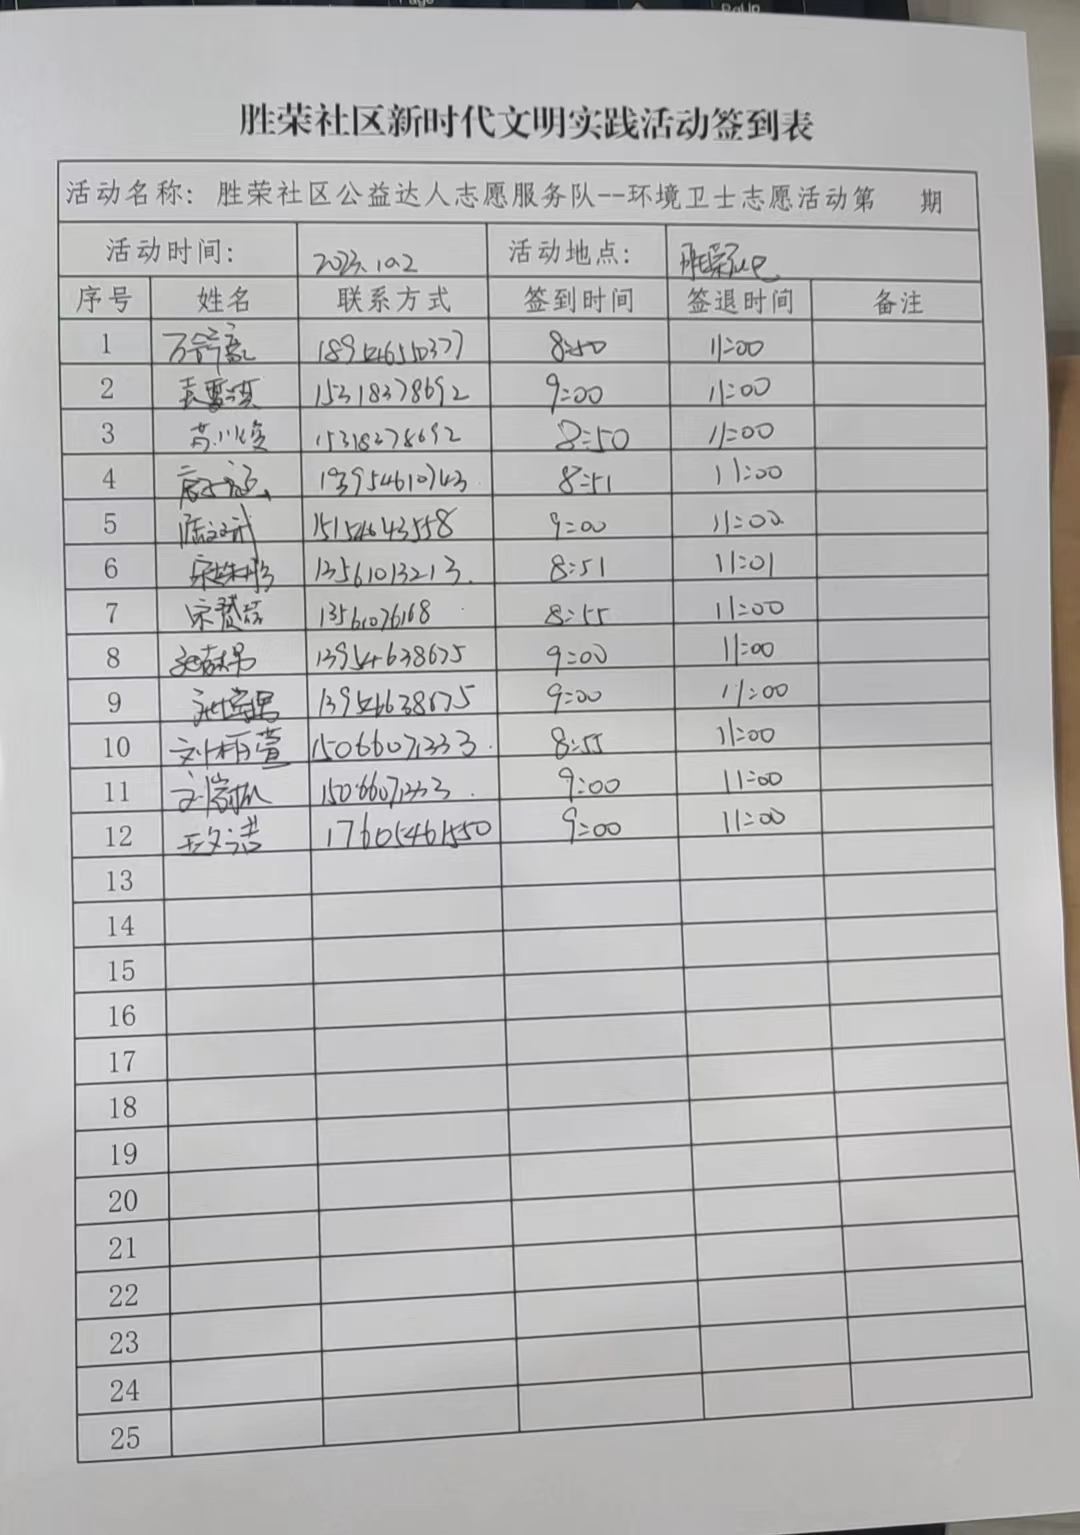 胜荣社区新时代文明实践活动签到表
活动名称：胜荣社区公益达人志愿服务队--环境卫士志愿活动第 期
活动时间： 2023.10.2 活动地点： 胜荣社区
序号 姓名 联系方式 签到时间 签退时间 备注
1 8:50 11:00
2 15318378692 9:00 11:00
3 15318378692 8:50 11:00
4 13954610743 8:51 11:00
5 15154643558 9:00 11:02
6 13561013213. 8:51 11:01
7 宋赞喆 8:55 11:00
8 13954638675 9:00 11:00
9 13954638675 9:00 11:00
10 刘栩萱 15066071333. 8:55 11:00
11 15066071333. 9:00 11:00
12 17605461550 9:00 11:00
13
14
15
16
17
18
19
20
21
22
23
24
25